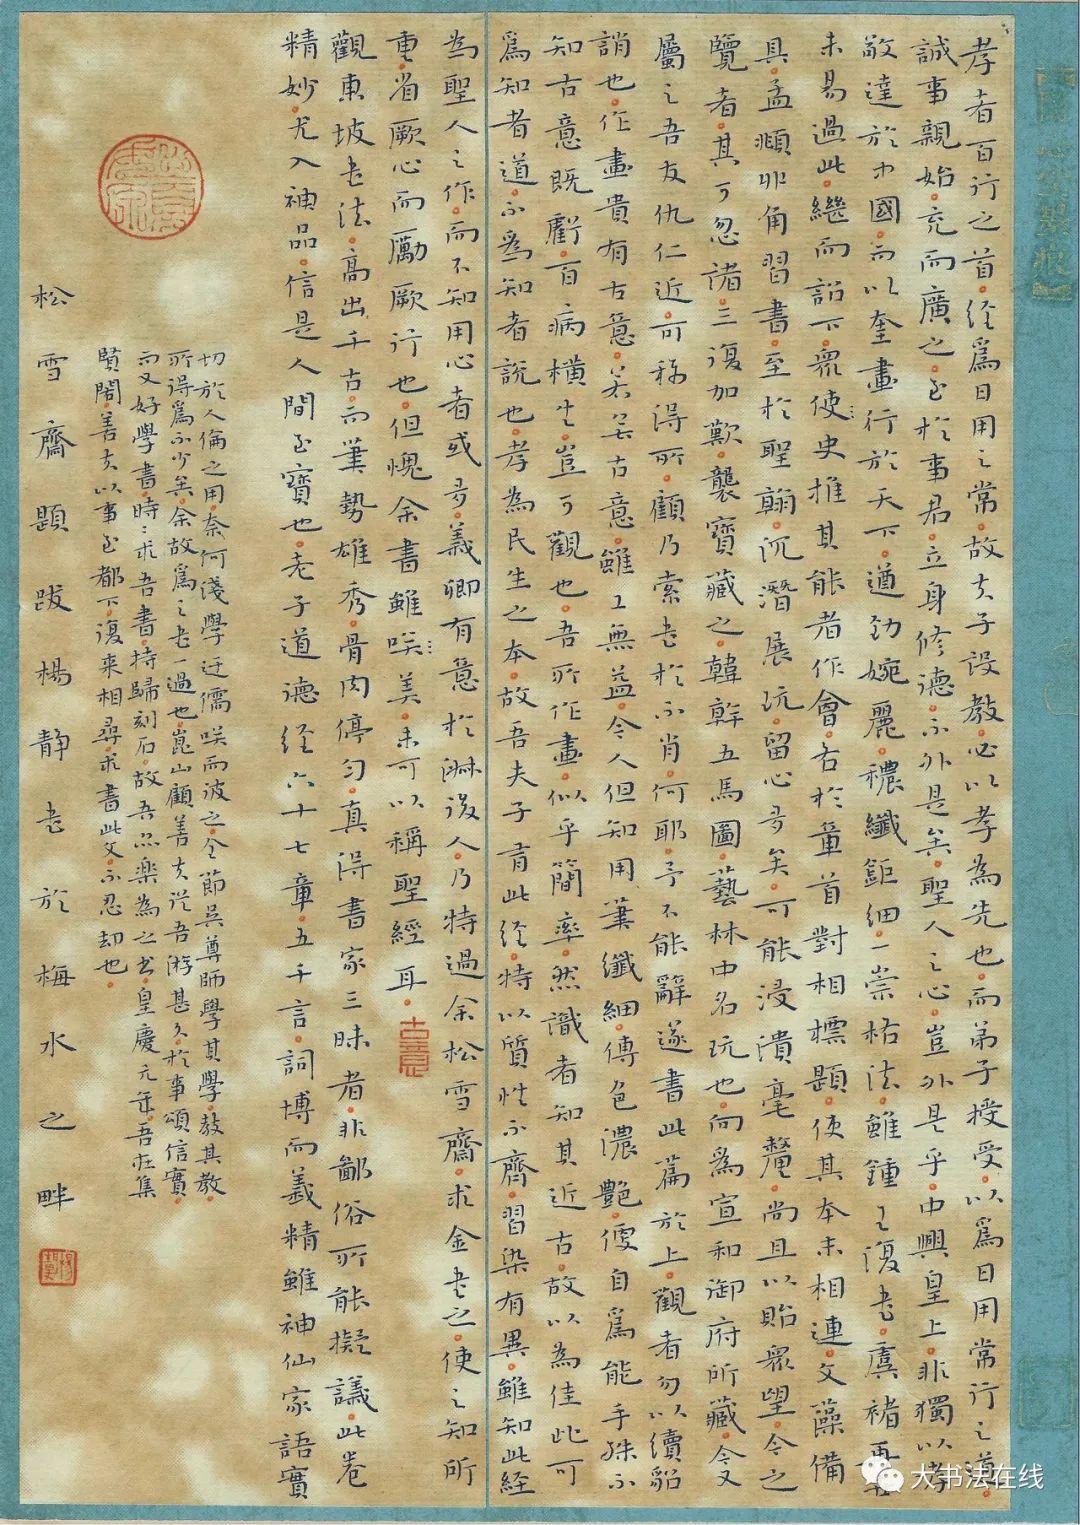 孝者百行之首。經爲日用之常。故夫子設教。必以孝為先也。而弟子授受。以爲日用常行之道。
誠事親始。充而廣之。至於事君。立身修德。不外是矣。聖人之心。豈外是乎。中興皇上。非獨以孝
敬達於中國。而以奎畫行於天下。遒勁婉麗。穠纖鉅細。一崇格法。雖鍾王復出。虞褚再
未易過此。繼而詔下。衆使史推其能者作會。右於章首。對相標題。使其本末相連。文藻備
具。孟頫丱角習書。至於聖翰。沉潛展玩。留心多矣。可能浸漬毫釐。尚且以貽衆望。今之
覽者。其可忽諸。三復加歎。襲寶藏之。韓幹五馬圖。藝林中名玩也。向爲宣和御府所藏。今又
屬之吾友仇仁近。可稱得所。顧乃索書於不肖。何耶。予不能辭。遂書此篇於上。觀者勿以續貂
誚也。作畫貴有古意。若無古意。雖工無益。今人但知用筆纖細。傅色濃艷。便自爲能手。殊不
知古意既虧。百病橫生。豈可觀也。吾所作畫。似乎簡率。然識者知其近古。故以為佳。此可
爲知者道。不爲知者說也。孝為民生之本。故吾夫子有此經。特以質性不齊。習染有異。雖知此經
為聖人之作。而不知用心者或多。義卿有意於淑後人。乃特過余松雪齋。求金書之。使之知所
重。省厥心而勵厥行也。但愧余書雖咲美。未可以稱聖經耳。
古意
觀東坡書法。高出千古。而筆勢雄秀。骨肉停勻。真得書家三昧者。非鄙俗所能擬議。此卷
精妙。尤入神品。信是人間至寶也。老子道德經六十七章。五千言。詞博而義精。雖神仙家語。實
切於人倫之用。奈何淺學迂儒咲而波之。全節吳尊師學其學。教其教。
所得爲不少矣。余故爲之書一過也。崑山顧善夫從吾游甚久。於事頌信實。
而又好學書。時時求吾書。持歸刻石。故吾亦樂為之書。皇慶元年。吾在集
賢閣。善夫以事至都下。復來相尋。求書此文。不忍却也。
松雪齋題跋楊靜書於梅水之畔
大书法在线